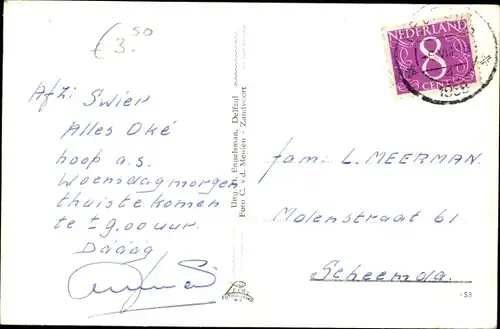 € 3.50
NEDERLAND
8
CENT
1958
Afz: Swier
Alles Oké
hoop a.s.
Woensdagmorgen
thuis te komen
te ± 9.00 uur.
Dááág
Uitg. H. Engelsman, Delfzijl
Foto C. v.d. Meulen - Zandvoort
fam. L. MEERMAN.
Molenstraat 61
Scheemda.